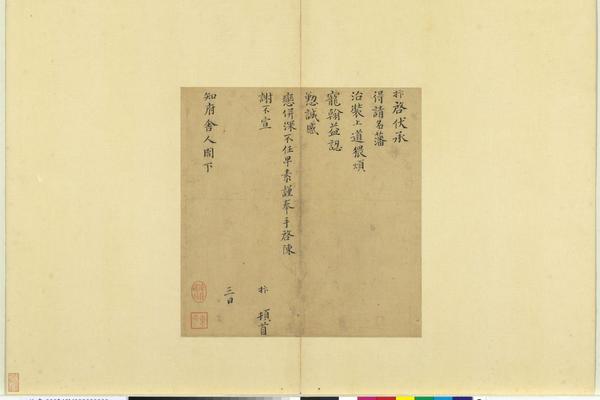 抃啓伏承
得請名藩
治裝上道猥煩
寵翰益認
懃誠感
戀併深不任早素謹奉手啓陳
謝不宣
抃 頓首
三日
知府舍人閣下